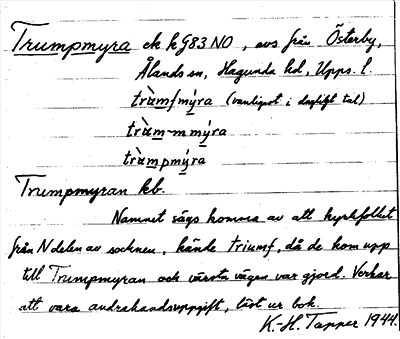 Trumpmyra ek k 983 NO, avs från Österby,
Ålands sn, Hagunda hd, Upps. l.
trùmfmýra (vanligast i dagligt tal)
trùm-mmýra
trùmpmýra
Trumpmyran kb.
Namnet sägs komma av att kyrkfolket
från N delen av socknen, kände triumf, då de kom upp
till Trumpmyran och värsta vägen var gjord. Verkar
att vara andrahandsuppgift, läst ur bok.
K.-H. Tapper 1944.